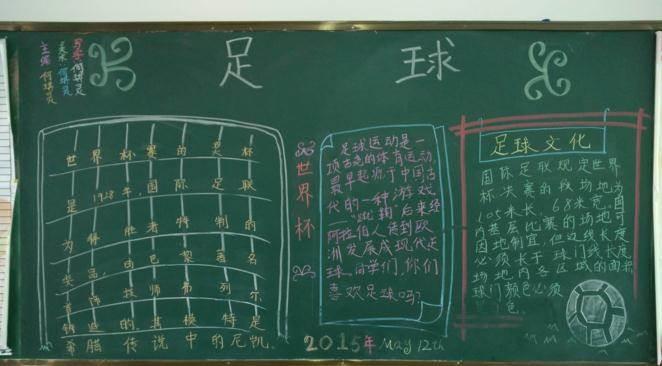 足球
主编 何琪灵
美术：何琪灵
写字：何琪灵
世界杯赛的奖杯
是1928年，国际足联
为得胜者特制的
奖品，由巴黎著名
首饰技师弗列尔
铸造的。其模特是
希腊传说中的尼凯。
世界杯
足球运动是一
项古老的体育运动，
最早起源于中国古
代的一种游戏
"蹴鞠"后来经
阿拉伯人传到欧
洲发展成现代足
球。同学们，你们
喜欢足球吗？
足球文化
国际足联规定世界
杯决赛的牧场地为
105米长，68米宽。国
内基层比赛的场地可
因地制宜，但边线长度
必须长于球门线长度
场地内各区域的面积
球门颜色必须
色。
2015年 May 12th